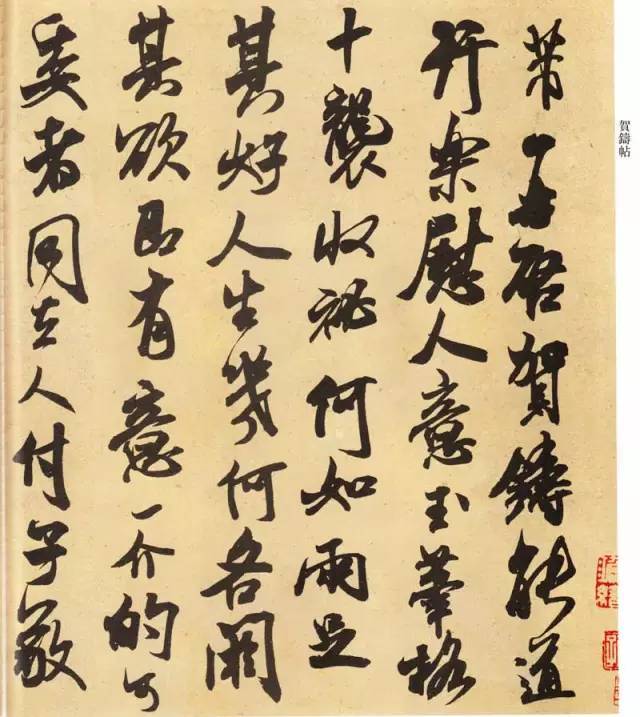 芾再啓賀鑄能道
行樂慰人意玉筆格
十襲收祕何如兩足
其好人生幾何各闕
其欲即有意一介的可
委者同去人付子敬
賀鑄帖